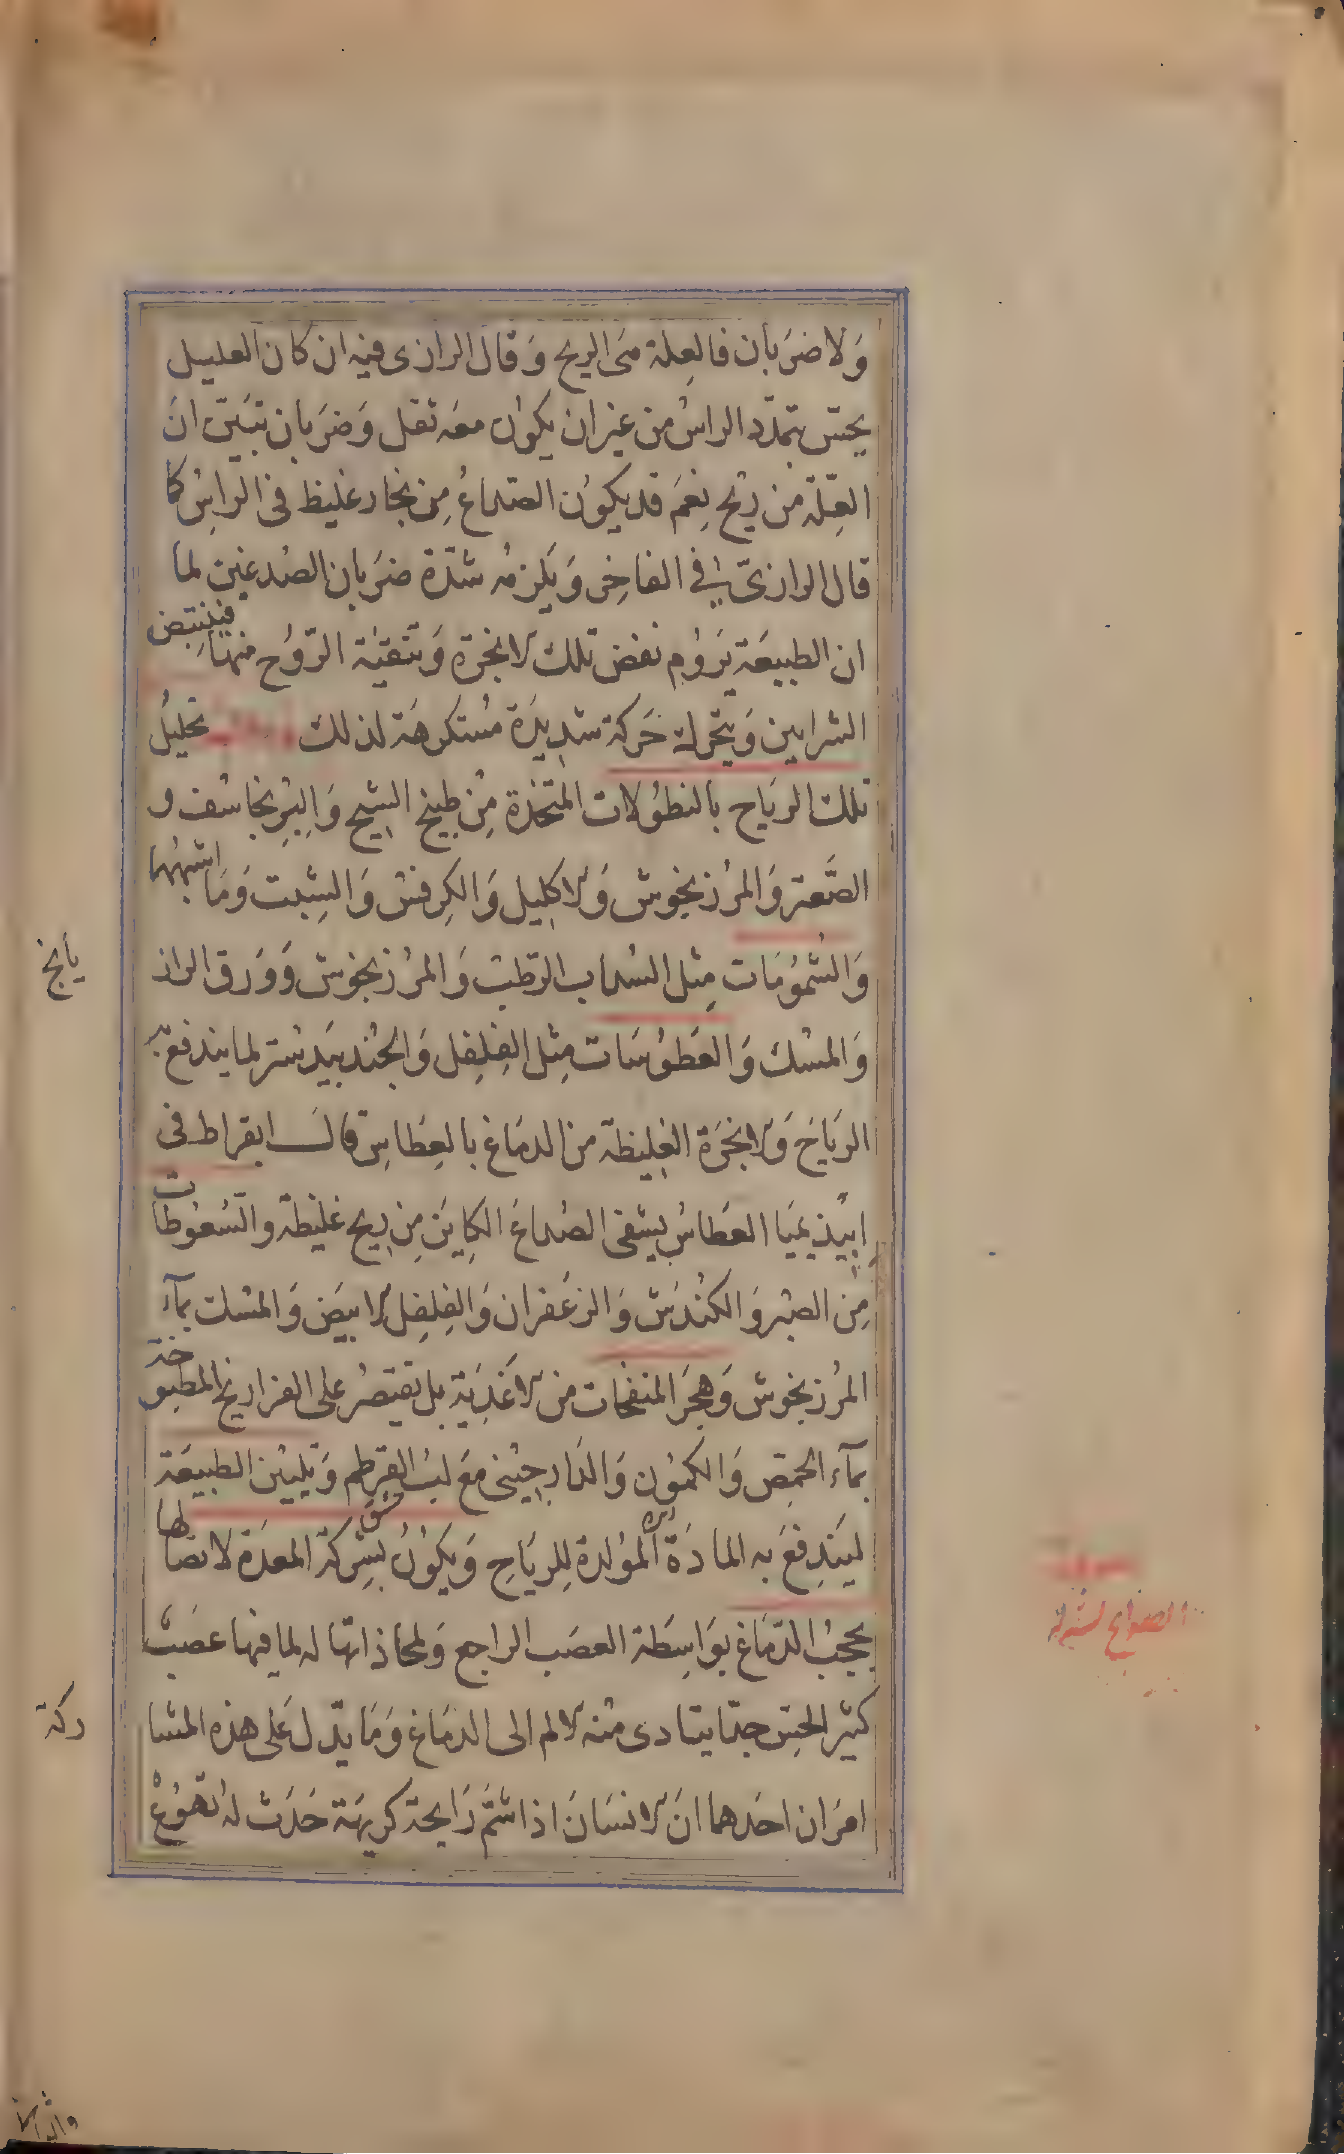 وَلا ضرَبان فالعِلة مِنَ الريح وَقال الرازى فيه ان كان العليل
يحسّ بتمدّد الراس من غير ان يكون معه ثقل وَضرَبان تبَيّن انَ
العِلّة من ريْح نِعَم قد يكوُن الصّداعُ مِن بخار غليظ فى الراسِ كما
قال الرازىّ فى الفاخِر وَيَلزمُه شدّة ضرَبان الصُدغين لما
ان الطبيعَة يَروُم نفض تلك الابخرَة وَتنقيَة الرّوُح منها فينتبض
الشرايين وَيتحرك حَركة شديدَة مُستكرهَة لذلك تحليلُ
تلك الريَاح بالنطوُلات المتخذة مِن طبيخ الشيح وَالبِرنجاسَف و
الصَّعتر وَالمرزنجوش وَالاكليل وَالكِرفس وَالشِبت وَمَا اشبهها
وَالشموُمَات مِثل السُداب الرَطبْ وَالمرْزنجوش وَوَرق الراز
يانج
وَالمسْك وَالعَطوُسَات مِثل الفِلفِل وَالجُندبيَدستر لما يندفع به
الريَاح وَالابخرَة الغليظة من الدمَاغ بالعِطَاس قالَ ابقراط فى
ابيْذيميَا العَطاسُ يشفى الصُداعَ الكاين مِن ريح غليظة والسّعُوطات
مِن الصبْر وَالكنْدسْ وَالزعَفران وَالفِلفِل الابيَض وَالمسْك بمآءِ
المرْزنجوش وَهجر المنفخات من الاغذيَة بل يَقتصرُ على الفراريج المطبوخة
بمآء الحمّص وَالكموُن وَالدَارجينى مَع لب القرطم وَتليُين الطبيعَة
ليَندِفعَ به المادَة المُوَلدة لِلريَاحِ وَيَكُوْنُ بشركة المعدَة لاتصالها
بحجُب الدّمَاغ بوَاسِطة العصَب الراجع وَلمحَاذاتها له لما فيها عصَبٌ
كثير الحسِ جدّا يتادى منْه الالم الى الدمَاغ وَمَا يدّل عَلى هذه المشا
ركة
امرَان احَدهما انَ الانسَانَ اذا شمَّ رَايحة كريهَة حَدَثْ له تهَوُعْ
الصداع لشركة